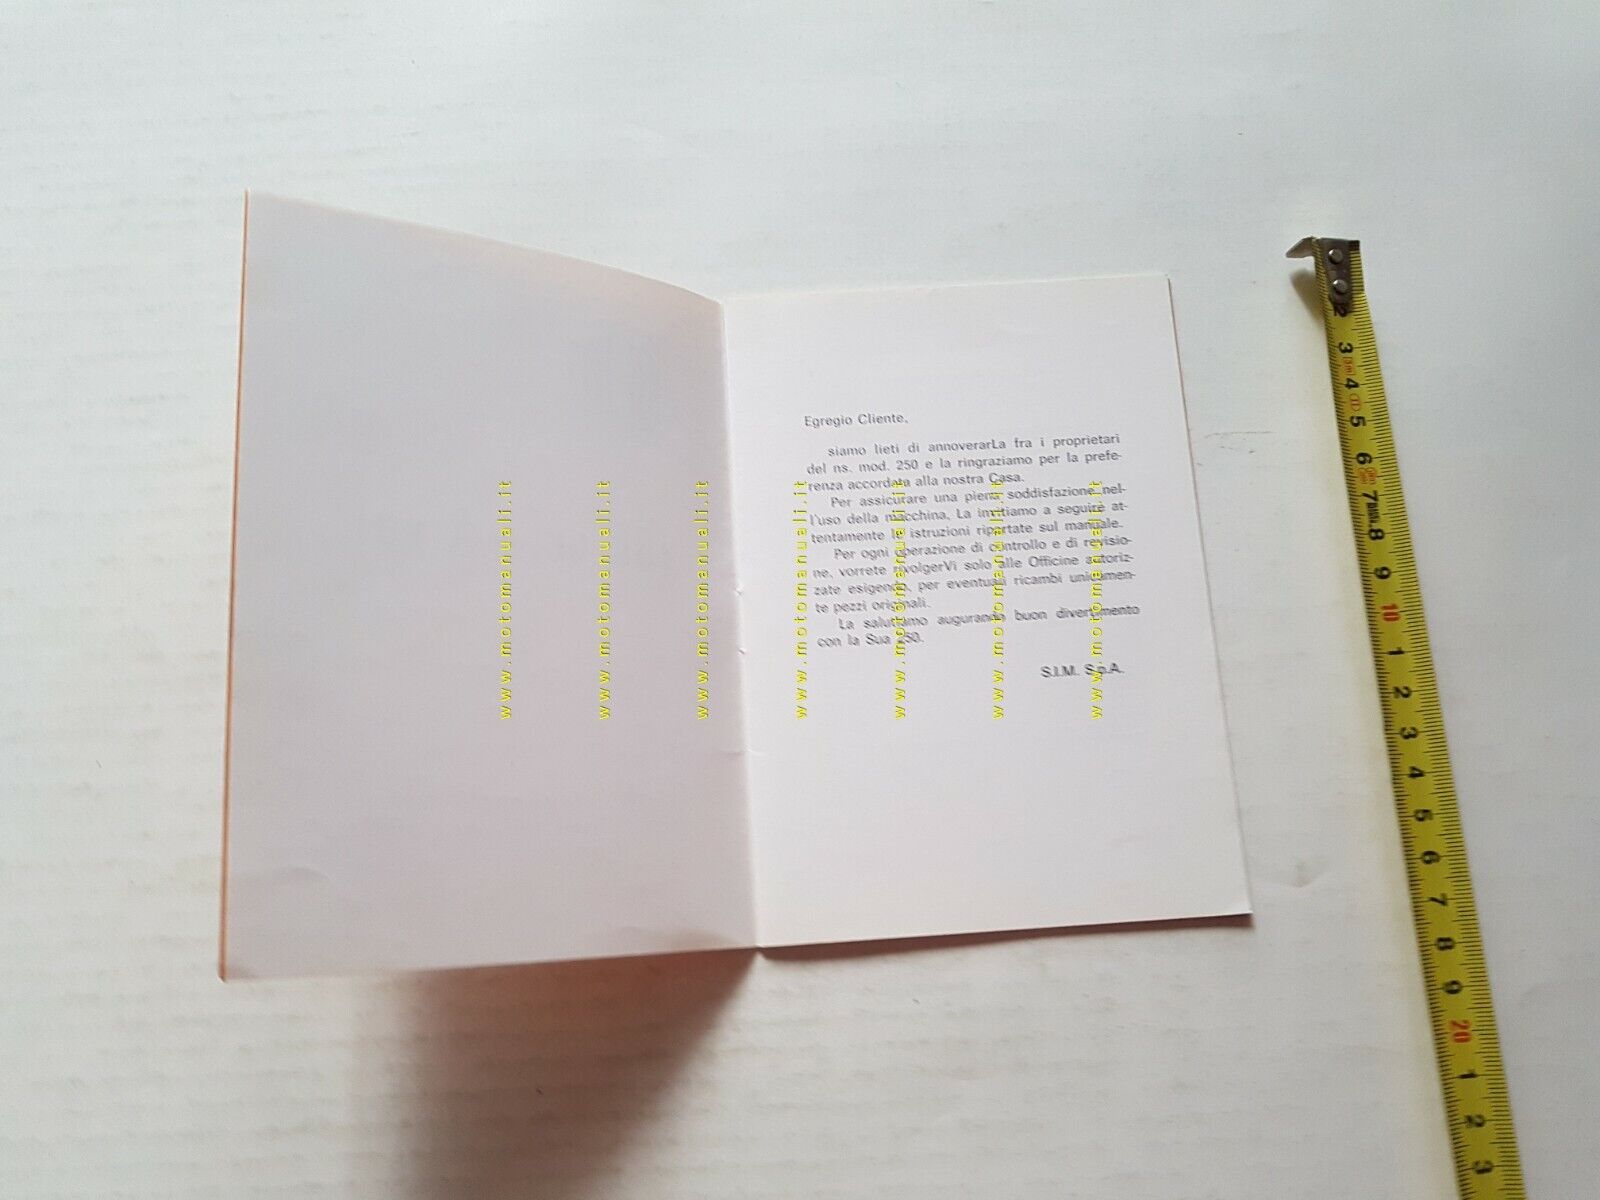 Egregio Cliente,
siamo lieti di annoverarLa fra i proprietari
del ns. mod. 250 e la ringraziamo per la prefe-
renza accordata alla nostra Casa.
Per assicurare una piena soddisfazione nel-
l'uso della macchina, La invitiamo a seguire at-
tentamente le istruzioni riportate sul manuale.
Per ogni operazione di controllo e di revisio-
ne, vorrete rivolgerVi solo alle Officine autoriz-
zate esigendo, per eventuali ricambi unicamen-
te pezzi originali.
La salutiamo augurando buon divertimento
con la Sua 250.
S.I.M. S.p.A.
www.motomanuali.it
www.motomanuali.it
www.motomanuali.it
www.motomanuali.it
www.motomanuali.it
www.motomanuali.it
www.motomanuali.it
2
3
4
5
6
7
8
9
10
1
2
3
4
5
6
7
8
9
20
1
2
3